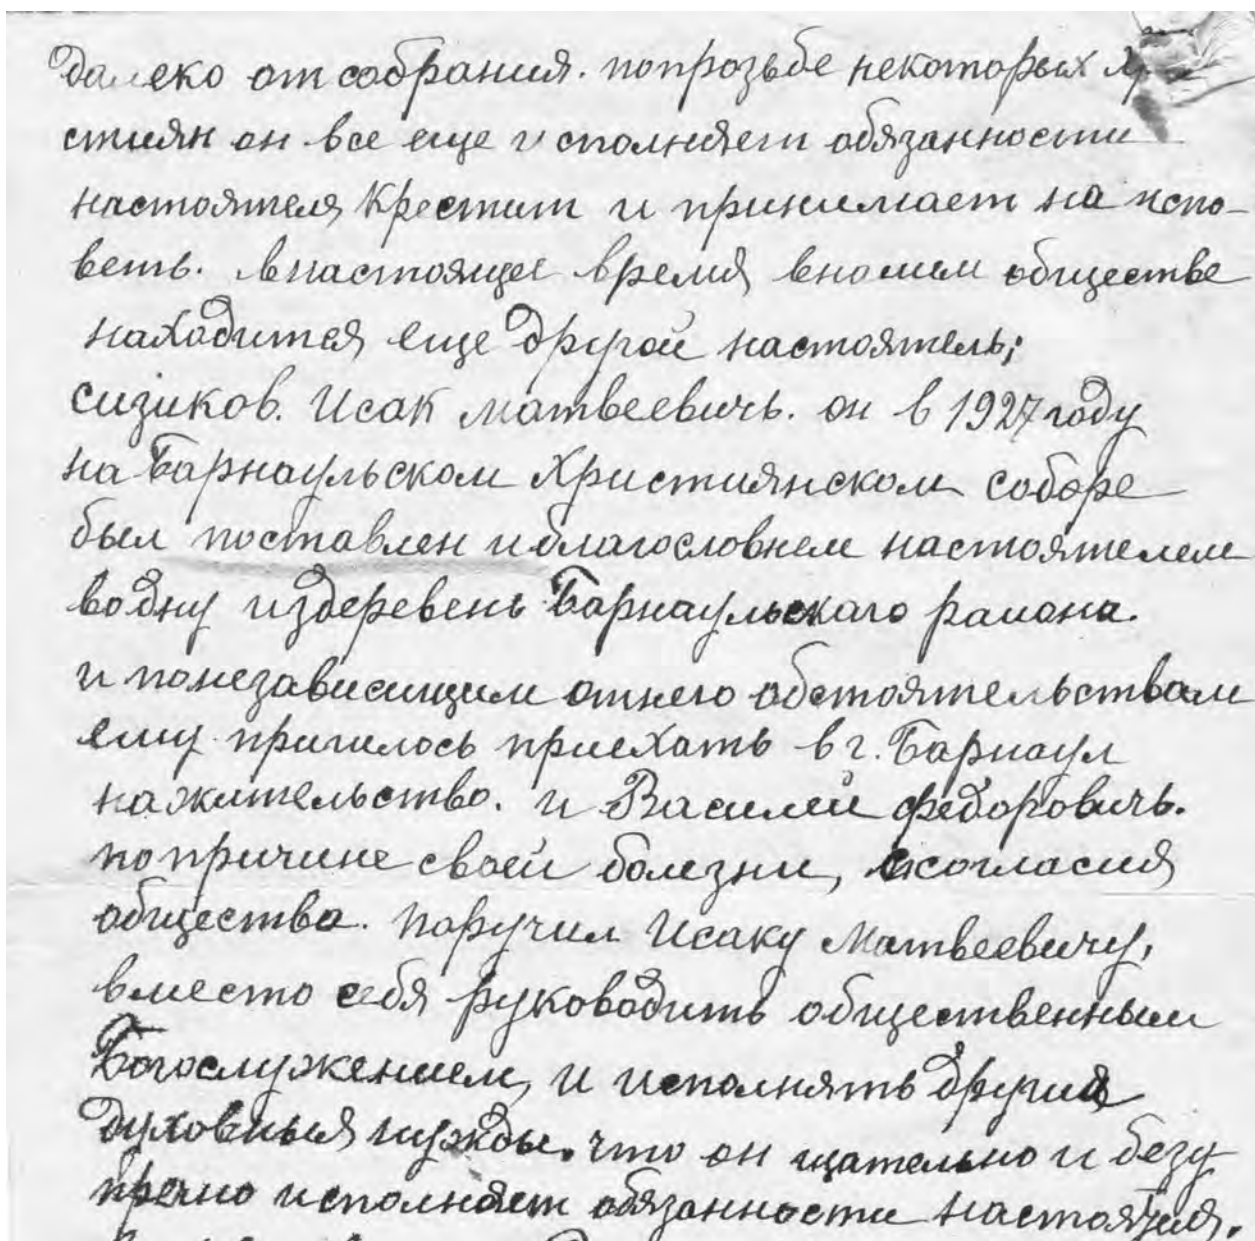 далеко от собрания. попрозьбе некоторых хри
стиян он все еще исполняет обязанности
настоятеля Крестит и принимает на испо-
веть. внастоящее время внашем обществе
находится еще другой настоятель;
сизиков. Исак Матвеевичь. он в 1927 году
на Барнаульском Християнском соборе
был поставлен и благословнем настоятелем
водну издеревень Барнаульскаго раиона.
и понезависищим отнего обстоятельствам
ему пришлось приехать в г. Барнаул
нажительство. и Василий Федоровичь.
попричине своей болезни, исогласия
общества. поручил Исаку Матвеевичу,
вместо себя руководить общественным
Богослужением, и исполнять другия
духовныя нужды. что он щательно и безу
пречно исполняет обязанности настоятеля.